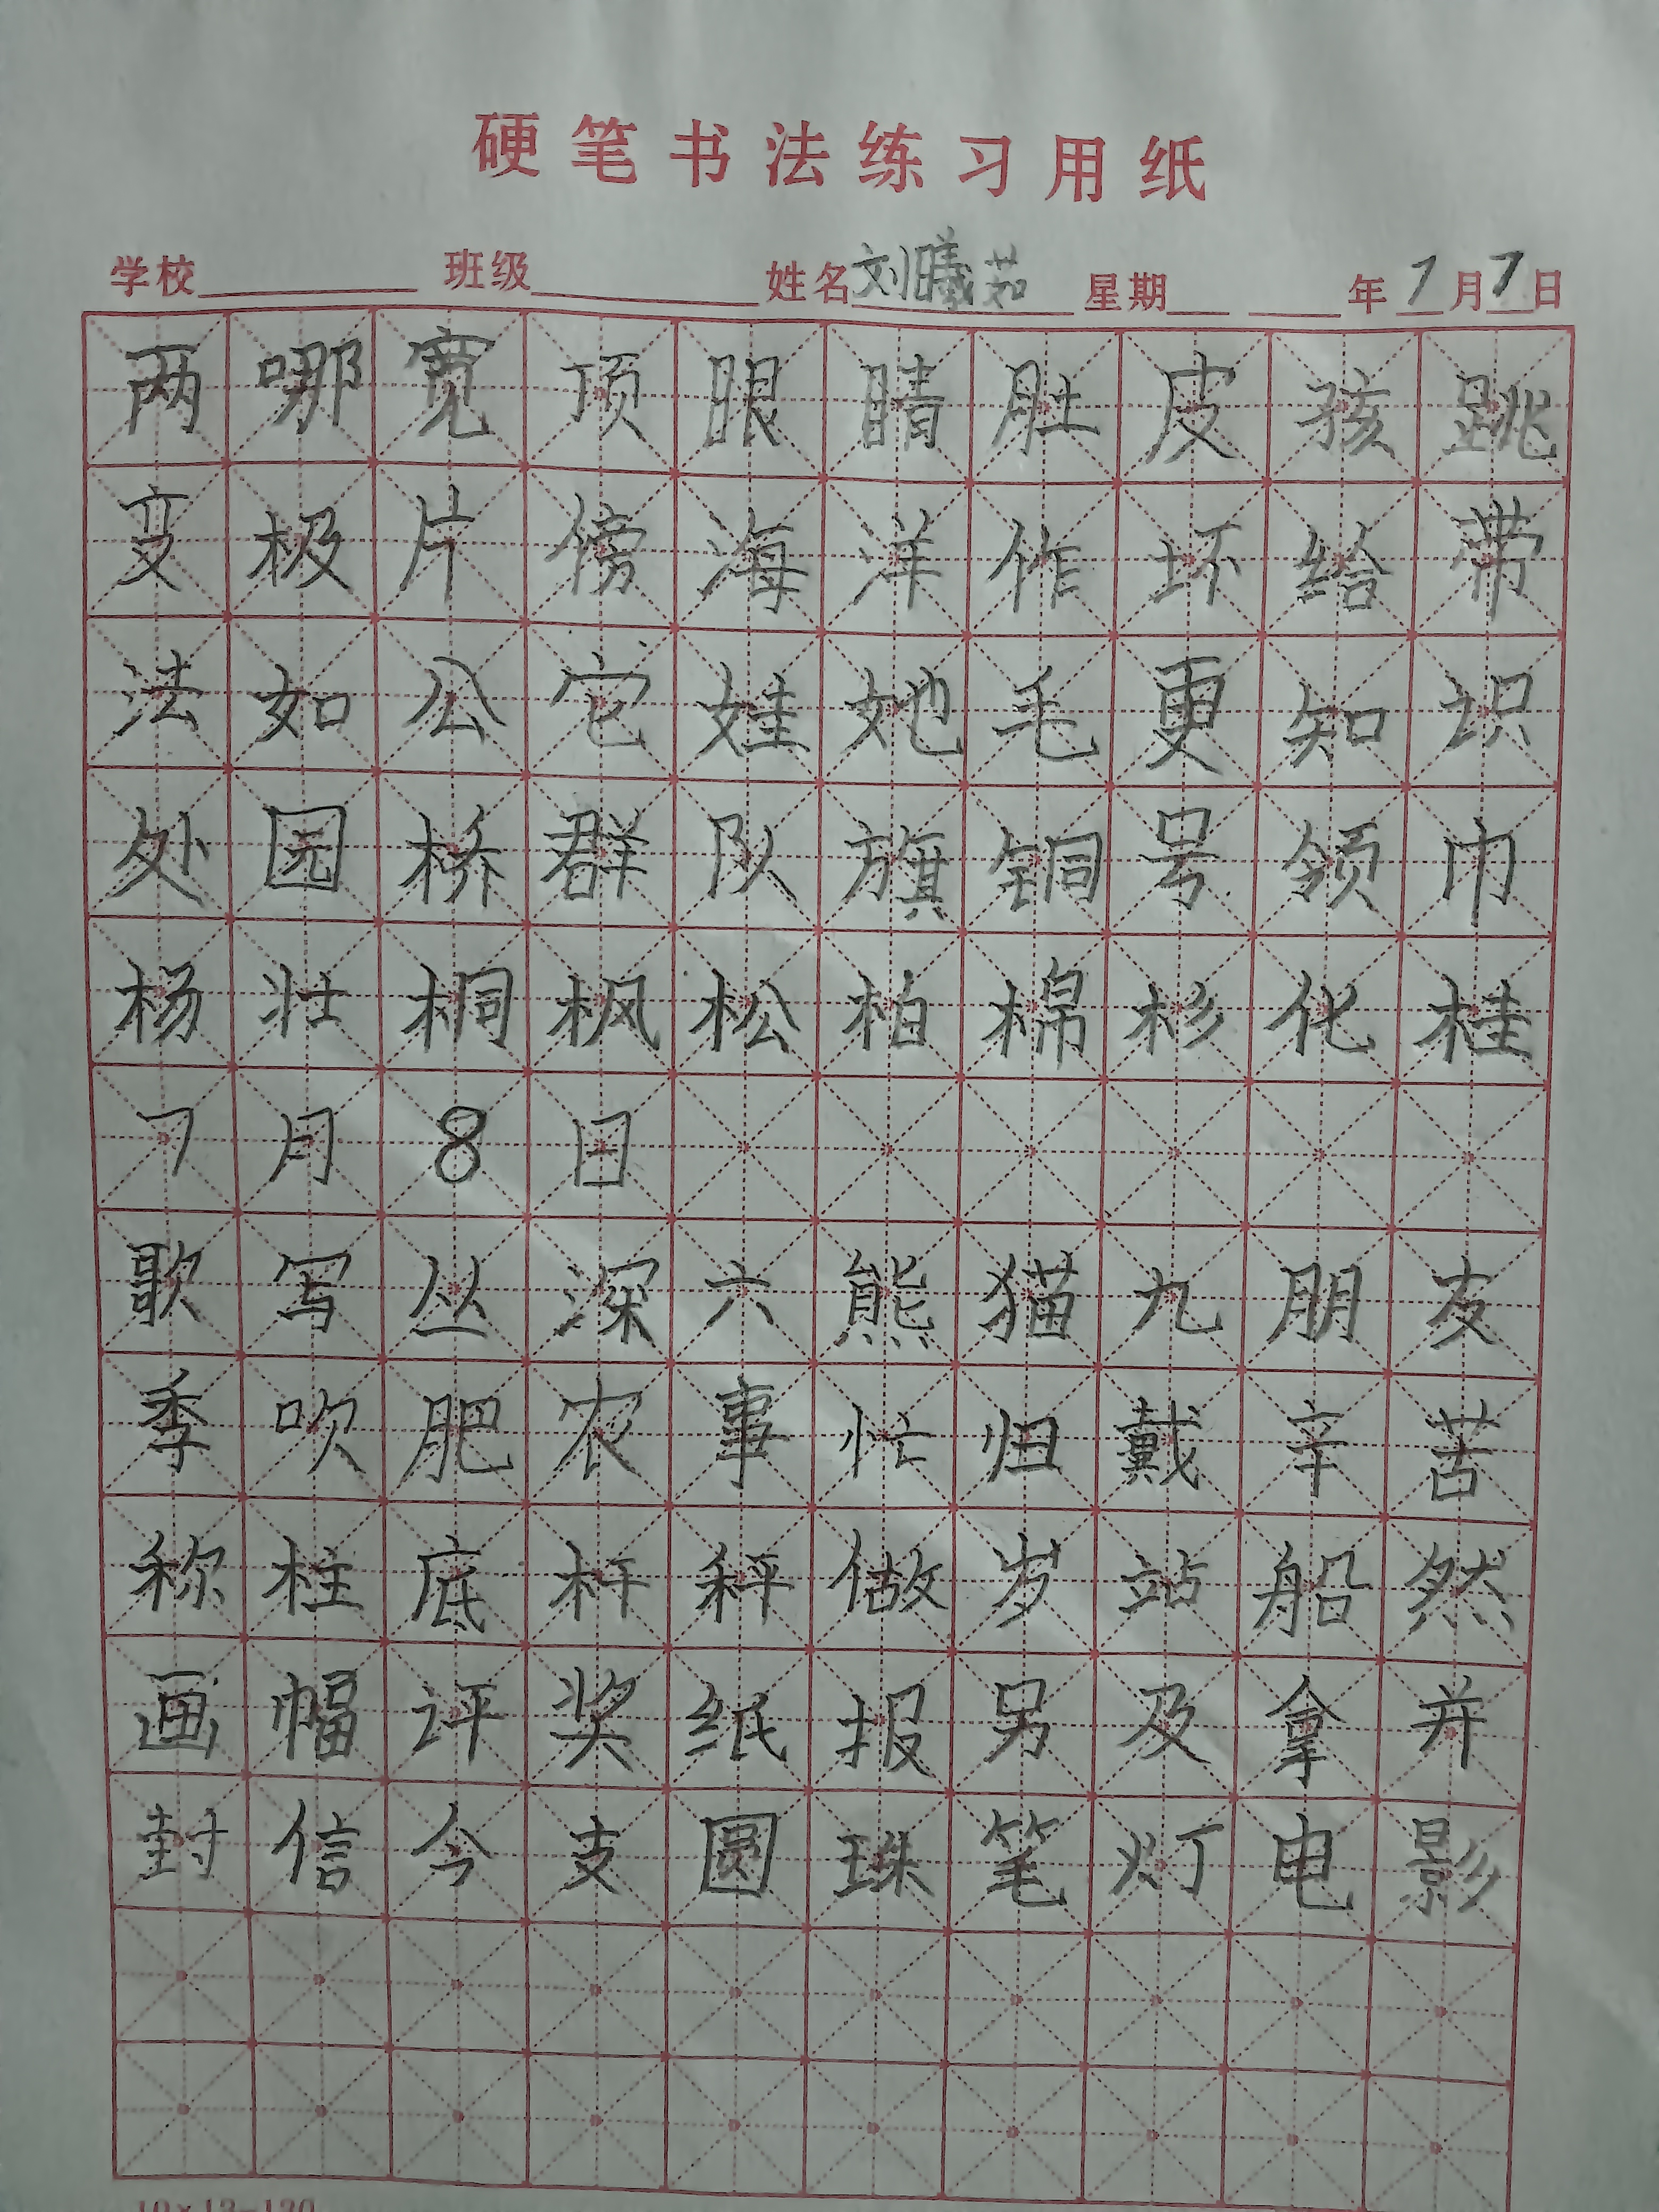 硬笔书法练习用纸
学校 班级 姓名 刘曦茹 星期 年 7 月 7 日
两哪宽顶眼睛肚皮孩跳
变极片傍海洋作坏给带
法如公它娃她毛更知识
处园桥群队旗铜号领巾
杨壮桐枫松柏棉杉化桂
7月8日
歌写丛深六熊猫九朋友
季吹肥农事忙归戴辛苦
称柱底杆秤做岁站船然
画幅评奖纸报另及拿并
封信今支圆珠笔灯电影
10×13=130